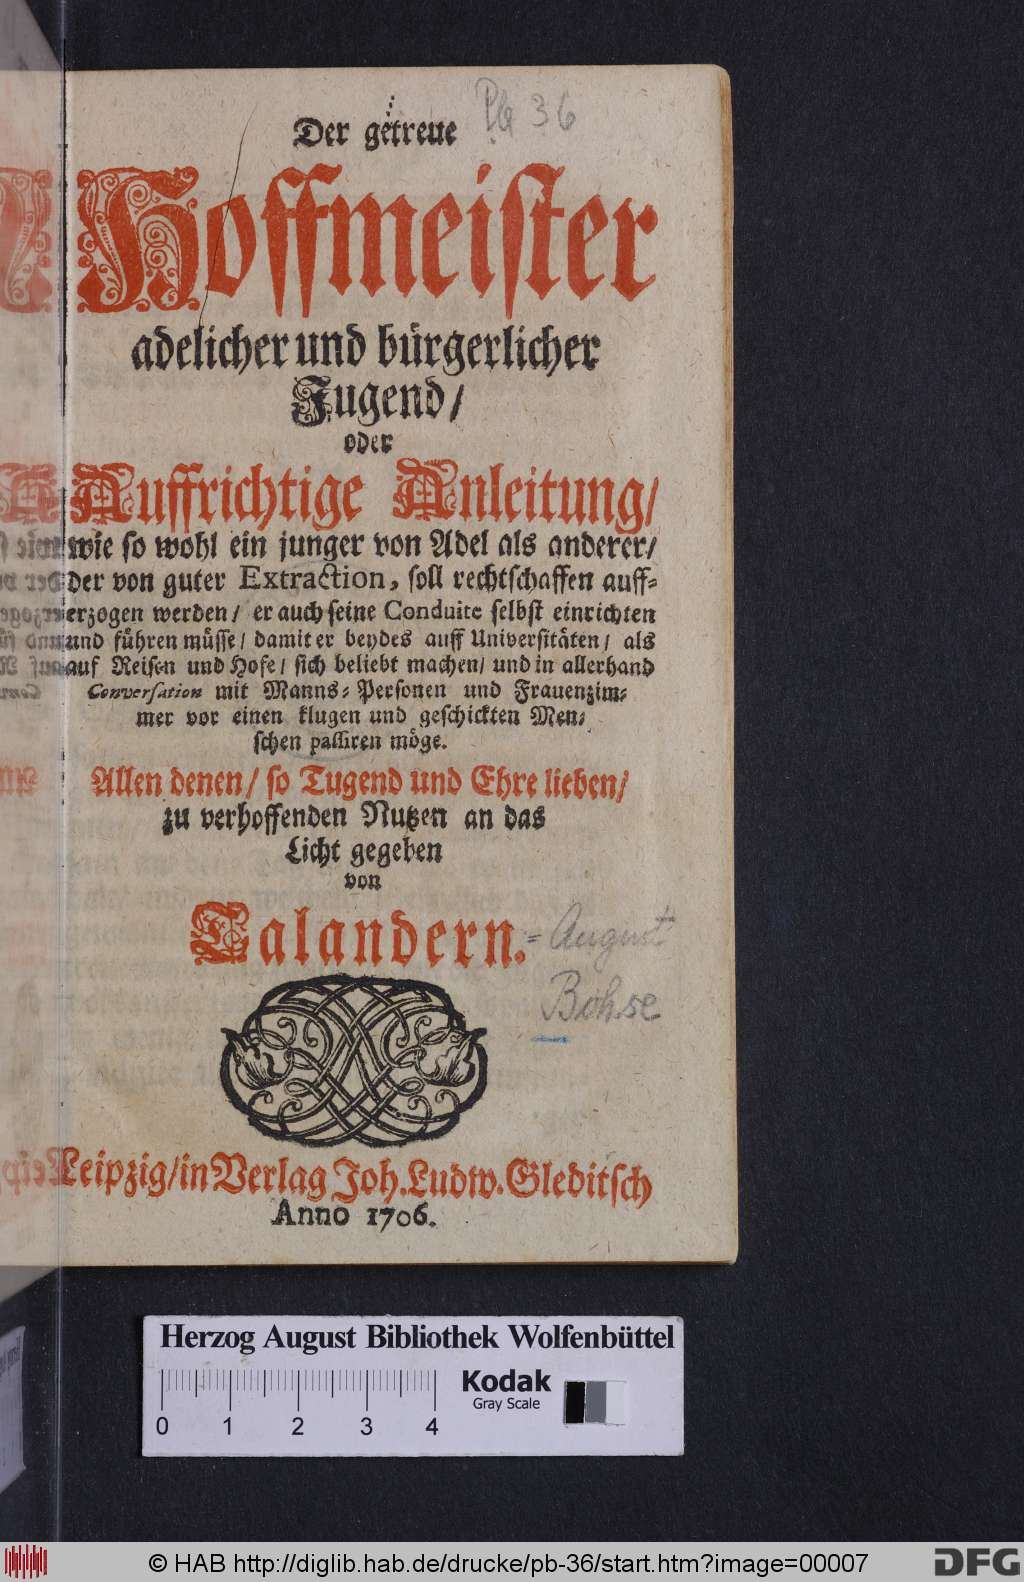 Pb 36
Der getreue
Hoffmeister
adelicher und bürgerlicher
Jugend/
oder
Auffrichtige Anleitung/
wie so wohl ein junger von Adel als anderer/
der von guter Extraction, soll rechtschaffen auff-
erzogen werden/ er auch seine Conduite selbst einrichten
und führen müsse/ damit er beydes auff Universitäten/ als
auf Reisen und Hofe/ sich beliebt machen/ und in allerhand
Conversation mit Manns-Personen und Frauenzim-
mer vor einen klugen und geschickten Men-
schen passiren möge.
Allen denen/ so Tugend und Ehre lieben/
zu verhoffenden Nutzen an das
Licht gegeben
von
Talandern. = August
Bohse
Leipzig/ in Verlag Joh. Ludw. Gleditsch
Anno 1706.
Herzog August Bibliothek Wolfenbüttel
Kodak
Gray Scale
0 1 2 3 4
© HAB http://diglib.hab.de/drucke/pb-36/start.htm?image=00007
DFG